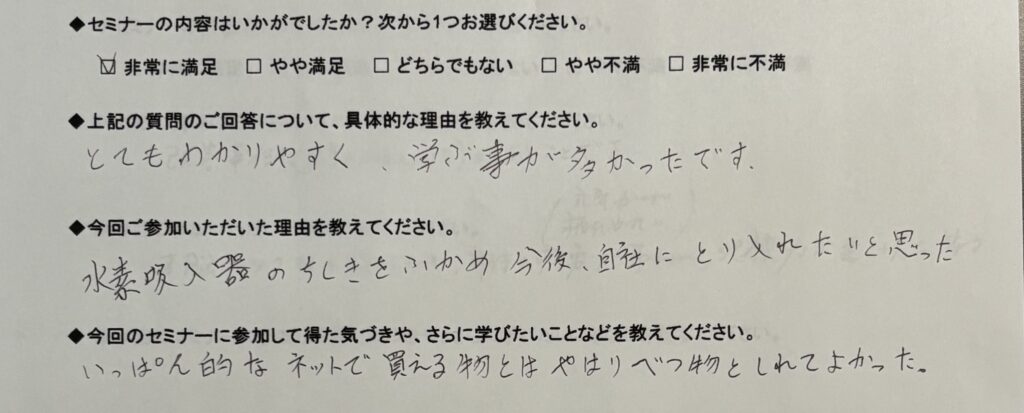 ◆セミナーの内容はいかがでしたか？次から1つお選びください。
☑ 非常に満足 □ やや満足 □ どちらでもない □ やや不満 □ 非常に不満
◆上記の質問のご回答について、具体的な理由を教えてください。
とてもわかりやすく、学ぶ事が多かったです.
◆今回ご参加いただいた理由を教えてください。
水素吸入器のちしきをふかめ今後、自社にとり入れたいと思った
◆今回のセミナーに参加して得た気づきや、さらに学びたいことなどを教えてください。
いっぱん的なネットで買える物とはやはりべつ物としれてよかった。